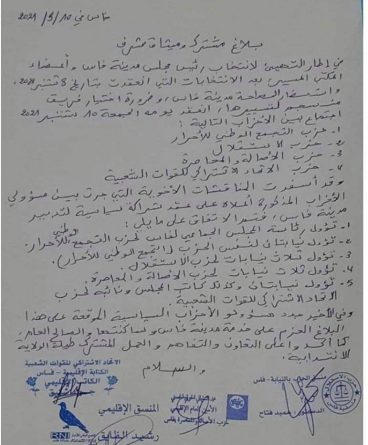 فاس في 10/9/2021
بلاغ مشترك وميثاق شرف
في إطار التحضير لانتخاب رئيس مجلس مدينة فاس وأعضاء
المكتب المسير بعد الانتخابات التي انعقدت بتاريخ 8 شتنبر 2021
مدينة فاس، وضرورة اختيار فريق
منسجم لتسييرها، انعقد يومه الجمعة 10 شتنبر 2021
اجتماع بين الأحزاب التالية:
1- حزب التجمع الوطني للأحرار
2- حزب الاستقلال
3- حزب الأصالة والمعاصرة
4- حزب الاتحاد الاشتراكي للقوات الشعبية
وقد أسفرت المناقشات الأخوية التي جرت بين مسؤولي
الأحزاب المذكورة أعلاه على عقد شراكة سياسية لتدبير
مدينة فاس، فتم الاتفاق على ما يلي:
1- تؤول رئاسة المجلس الجماعي لفاس لحزب التجمع الوطني للأحرار.
2- تؤول نيابتان لنفس الحزب (التجمع الوطني للأحرار).
3- تؤول ثلاث نيابات لحزب الاستقلال.
4- تؤول ثلاث نيابات لحزب الأصالة والمعاصرة.
5- تؤول نيابتان وكذلك كاتب المجلس ونائبه لحزب
الاتحاد الاشتراكي للقوات الشعبية.
وفي الأخير يجدد مسؤولو الأحزاب السياسية الموقعة على هذا
البلاغ العزم على خدمة مدينة فاس وساكنتها والصالح العام،
كما أكدوا على التعاون والتفاهم والعمل المشترك طيلة الولاية
الانتدابية.
والسلام
الاتحاد الاشتراكي للقوات الشعبية
الكتابة الإقليمية - فاس
الكاتب الإقليمي
المنسق الإقليمي
رشيد الفايق
RNI
حميد فتاح